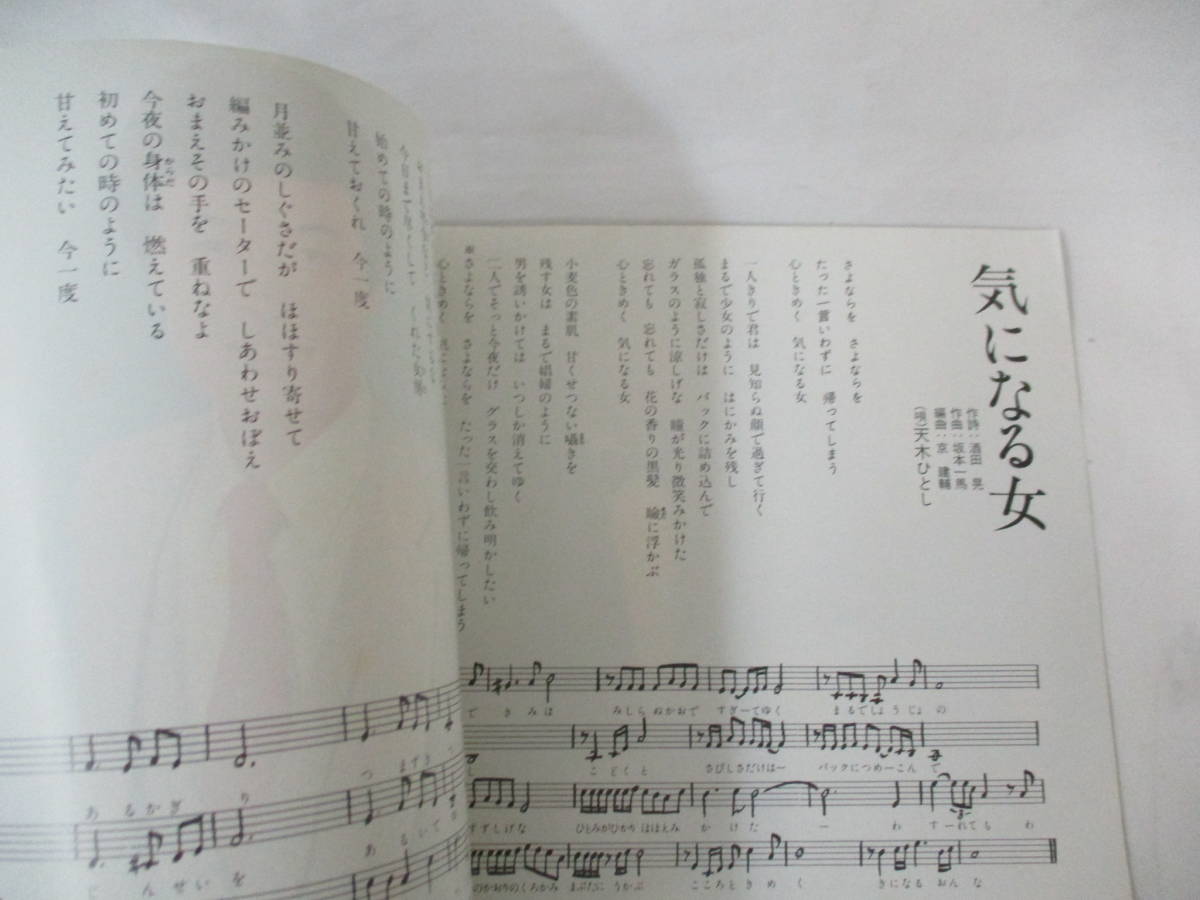 気になる女
作詩：酒田　晃
作曲：坂本一馬
編曲：京　建輔
（唄）天木ひとし
さよならを　さよならを
たった一言いわずに　帰ってしまう
心ときめく　気になる女
一人きりで君は　見知らぬ顔で過ぎて行く
まるで少女のように　はにかみを残し
孤独と寂しさだけは　バックに詰め込んで
ガラスのように涼しげな　瞳が光り微笑みかけた
忘れても　忘れても　花の香りの黒髪　瞼に浮かぶ
心ときめく　気になる女
小麦色の素肌　甘くせつない囁きを
残す女は　まるで娼婦のように
男を誘いかけては　いつしか消えてゆく
二人でそっと今夜だけ　グラスを交わし飲み明かしたい
※さよならを　さよならを　たった一言いわずに帰ってしまう
心ときめく
できみは　みしらぬかおで　すぎーてゆく　まるでしょうじょの
し　こどくと　さびしさだけはー　バックにつめーこんで
すずしげな　ひとみがひかり　ほほえみ　かけた　ー　わすーれても　わ
のかおりのくろかみ　まぶたに　うかぶ　こころときめく　きになる　おんな
始めての時のように
甘えておくれ　今一度
月並みのしぐさだが　ほほすり寄せて
編みかけのセーターで　しあわせおぼえ
おまえその手を　重ねなよ
今夜の身体は　燃えている
からだ
初めての時のように
甘えてみたい　今一度
つまずき
あるかぎり
あるいて
じんせいを